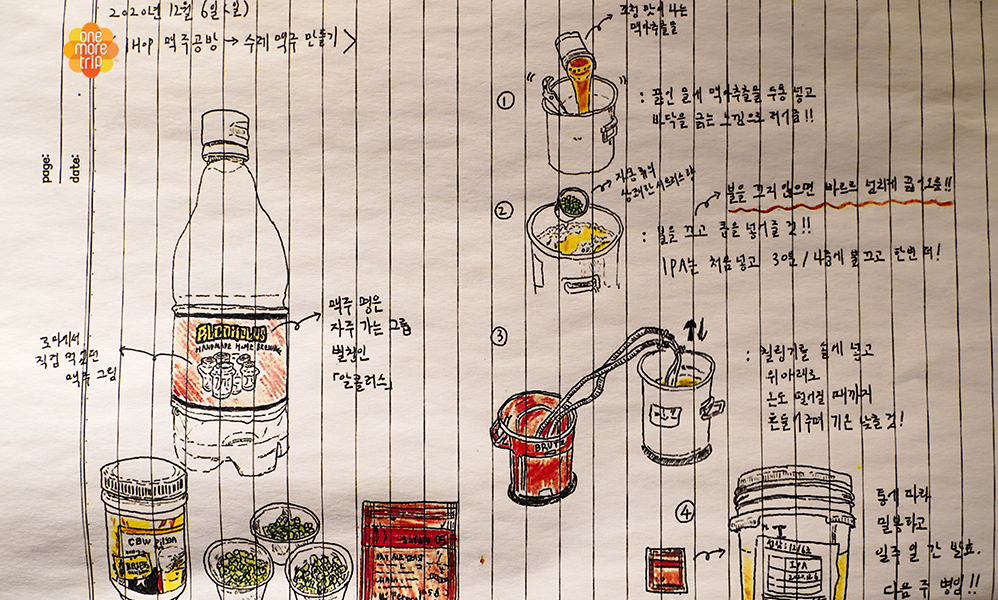 one
more
trip
2020년 12월 6일 (일)
맥주공방 → 수제 맥주 만들기 >
page:
date:
맥주 명은
자주 가는 그룹
별칭인
「알콜러스」
HANDMADE HOME BREWING
직접 먹었던
맥주 그림
조청 맛이 나는
맥아추출물
①
: 끓인 물에 맥아추출물 두통 넣고
바닥을 긁는 느낌으로 저어줌!!
②
불을 끄지 않으면 바르르 넘치게 끓어오름!!
: 불을 끄고 홉을 넣어줄 것!!
IPA는 처음 넣고 30분 / 4중에 불 끄고 한번 더!
③
: 칠링기를 물에 넣고
위아래로
온도 떨어질 때까지
흔들어주며 기온 낮출 것!
BREW
④
통에 따라
밀봉하고
일주일 간 발효.
다음 주 병입!!
CBW
IPA
2020.12.6